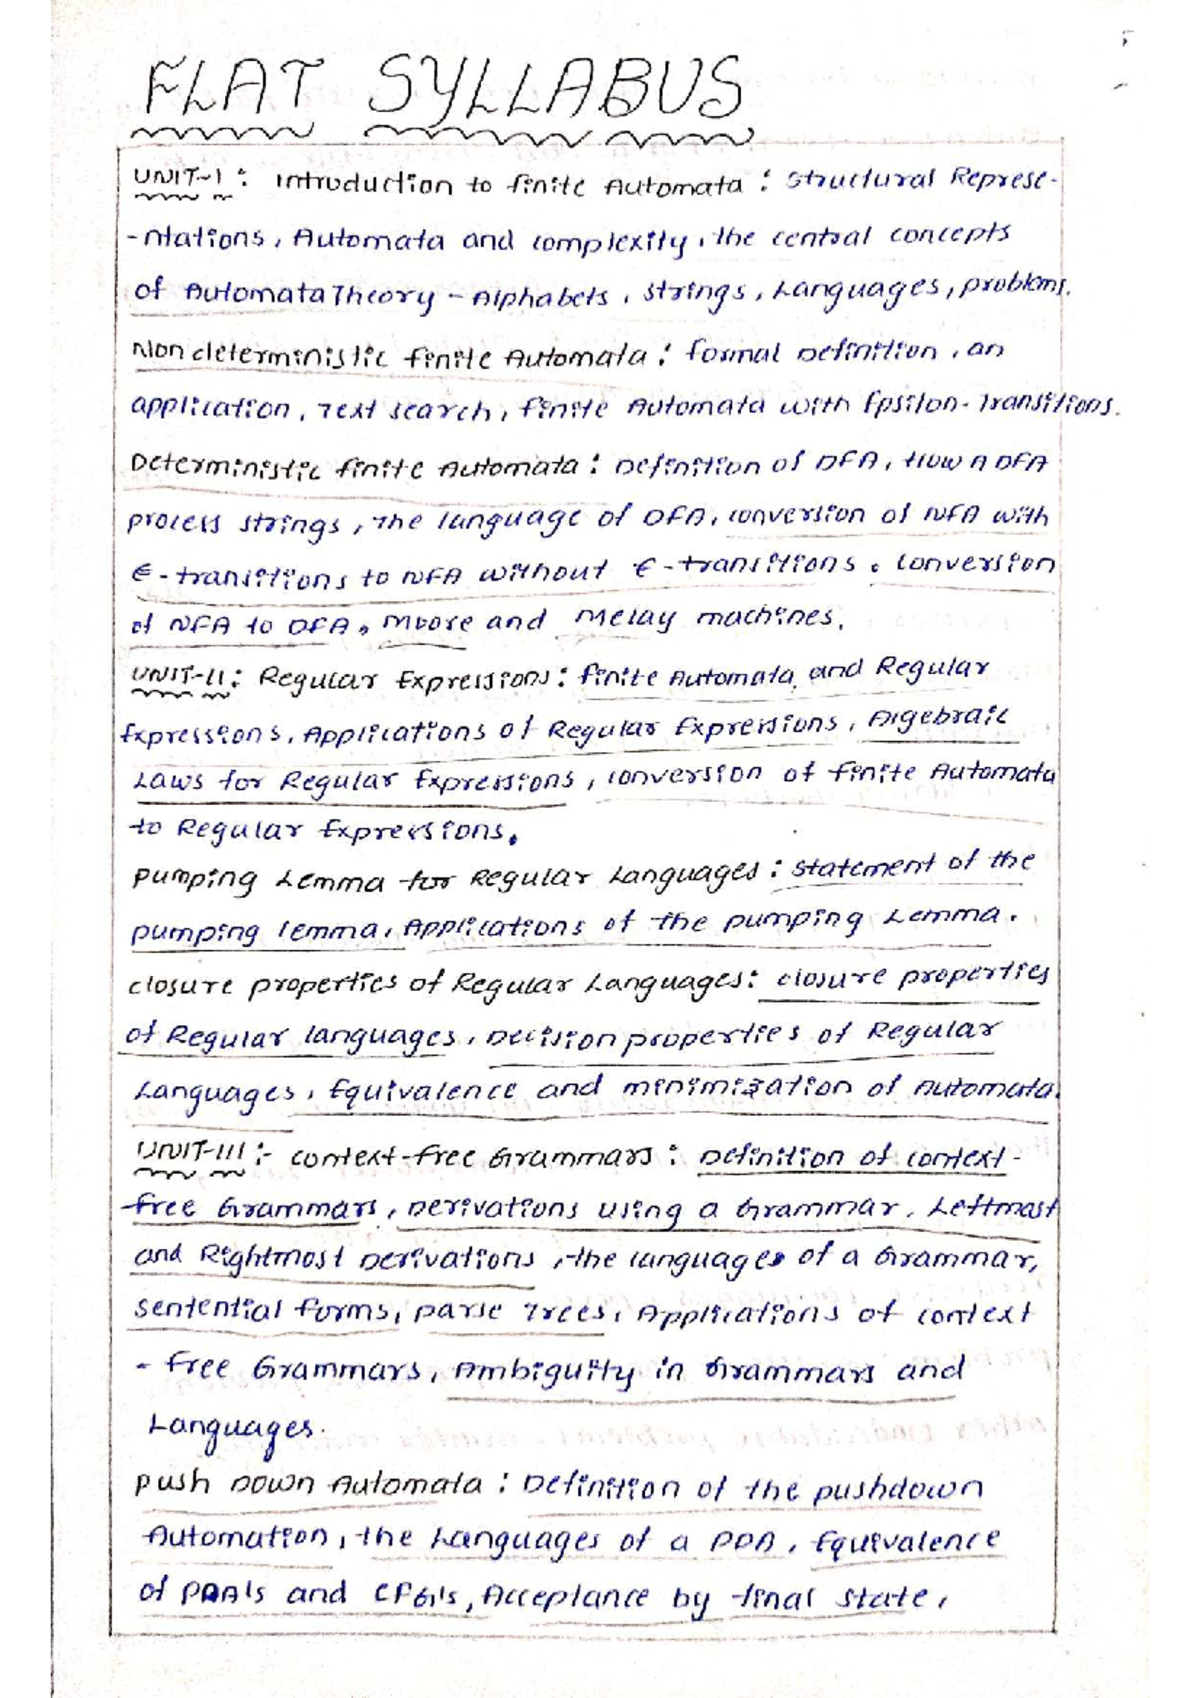 FLAT SYLLABUS
UNIT-I : Introduction to finite Automata : Structural Represe-
-ntations, Automata and complexity, the central concepts
of Automata Theory - Alphabets, strings, Languages, problems.
Non deterministic finite Automata : formal Definition, an
application, Text search, finite Automata with Epsilon-Transitions.
Deterministic finite Automata : Definition of DFA, How A DFA
process strings, The language of DFA, conversion of NFA with
ϵ-transitions to NFA without ϵ-transitions. conversion
of NFA to DFA, Moore and Melay machines.
UNIT-II : Regular Expressions : finite Automata and Regular
Expressions, Applications of Regular Expressions, Algebraic
Laws for Regular Expressions, conversion of finite Automata
to Regular Expressions.
pumping Lemma for Regular Languages : statement of the
pumping lemma, Applications of the pumping Lemma.
closure properties of Regular Languages : closure properties
of Regular languages, Decision properties of Regular
Languages, Equivalence and minimization of Automata.
UNIT-III :- context-free Grammars : Definition of context-
-free Grammars, Derivations using a Grammar, Leftmost
and Rightmost Derivations, the languages of a Grammar,
sentential forms, parse Trees, Applications of context
- free Grammars, Ambiguity in Grammars and
Languages.
push Down Automata : Definition of the pushdown
Automation, the Languages of a PDA, Equivalence
of PDA's and CFG's, Acceptance by final state,